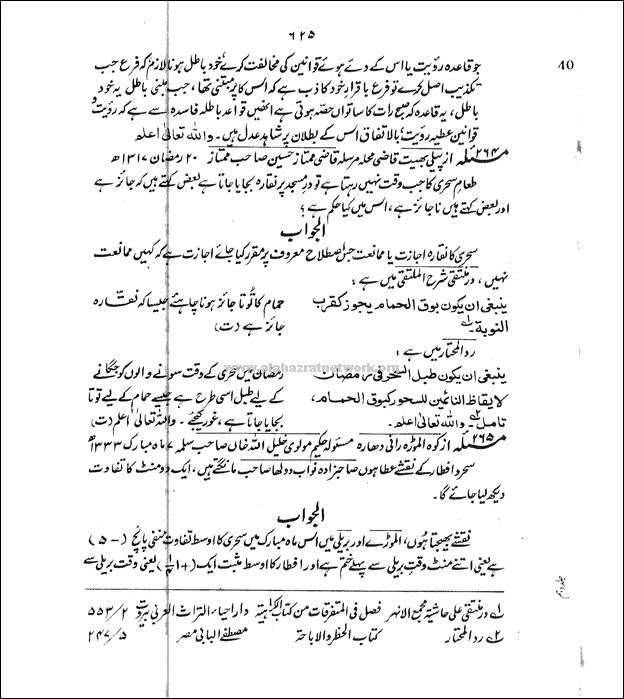 ۶۲۵
40
جو قاعدہ رؤیت یا اس کے دئے ہوئے قوانین کی مخالفت کرے خود باطل ہونا لازم کہ فرع جب
تکذیب اصل کرے تو فرع باقرار خود کاذب ہے کہ اس کا پر مبتنی تھا، جب مبنی باطل یہ خود
باطل، یہ قاعدہ کہ صبح رات کا ساتواں حصہ ہوتی ہے انھیں قواعد باطلہ فاسدہ سے ہے کہ رؤیت و
قوانین عطیہ رؤیت بالاتفاق اس کے بطلان پر شاہد عدل ہیں۔ واللہ تعالٰی اعلم
مسئلہ ۲۶۴ از پیلی بھیت قاضی محلہ مرسلہ قاضی ممتاز حسین صاحب ممتاز ۲۰ رمضان ۱۳۱۷ھ
طعام سحری کا جب وقت نہیں رہتا ہے تو در مسجد پر نقارہ بجایا جاتا ہے بعض کہتے ہیں کہ جائز ہے
اور بعض کہتے ہیں ناجائز ہے، اس میں کیا حکم ہے؟
الجواب
سحری کا نقارہ اجازت یا ممانعت جس اصطلاح معروف پر مقرر کیا جائے اجازت ہے کہ کہیں ممانعت
نہیں، در منتقی شرح الملتقی میں ہے:
ینبغی ان یکون بوق الحمام یجوز کضرب النوبۃ۔۱؎
حمام کا تُوتا جائز ہونا چاہئے جیسا کہ نقارہ جائز ہے (ت)
ردالمحتار میں ہے:
ینبغی ان یکون طبل السحر فی رمضان لایقاظ النائمین للسحور کبوق الحمام، تامل۲؎ واللہ تعالٰی اعلم۔
رمضان میں سحری کے وقت سونے والوں کو جگانے کے لیے طبل اسی طرح ہے جیسے حمام کے لیے توتا بجایا جاتا ہے، غور کیجئے۔ واللہ تعالٰی اعلم (ت)
www.alahazratnetwork.org
مسئلہ ۲۶۵ از کوہ الموڑہ رانی دھارہ مسئولہ حکیم مولوی خلیل اللہ خاں صاحب سلمہ ۷ ماہ مبارک ۱۳۳۳ھ
سحر و افطار کے نقشے عطا ہوں صاحبزادہ نواب دولھا صاحب مانگتے ہیں، ایک دو منٹ کا تفاوت
دیکھ لیا جائے گا۔
الجواب
نقشے بھیجتا ہوں، الموڑے اور بریلی میں اس ماہ مبارک میں سحری کا اوسط تفاوت منفی پانچ (-۵)
ہے یعنی اتنے منٹ وقت بریلی سے پہلے ختم ہے اور افطار کا اوسط مثبت ایک یعنی وقت بریلی سے
۱؎ در منتقی علی حاشیۃ مجمع الانہر فصل فی المتفرقات من کتاب الکراہیۃ داراحیاء التراث العربی بیروت ۲/ ۵۵۳
۲؎ ردالمحتار کتاب الحظر والاباحۃ مصطفی البابی مصر ۵/ ۲۴۷